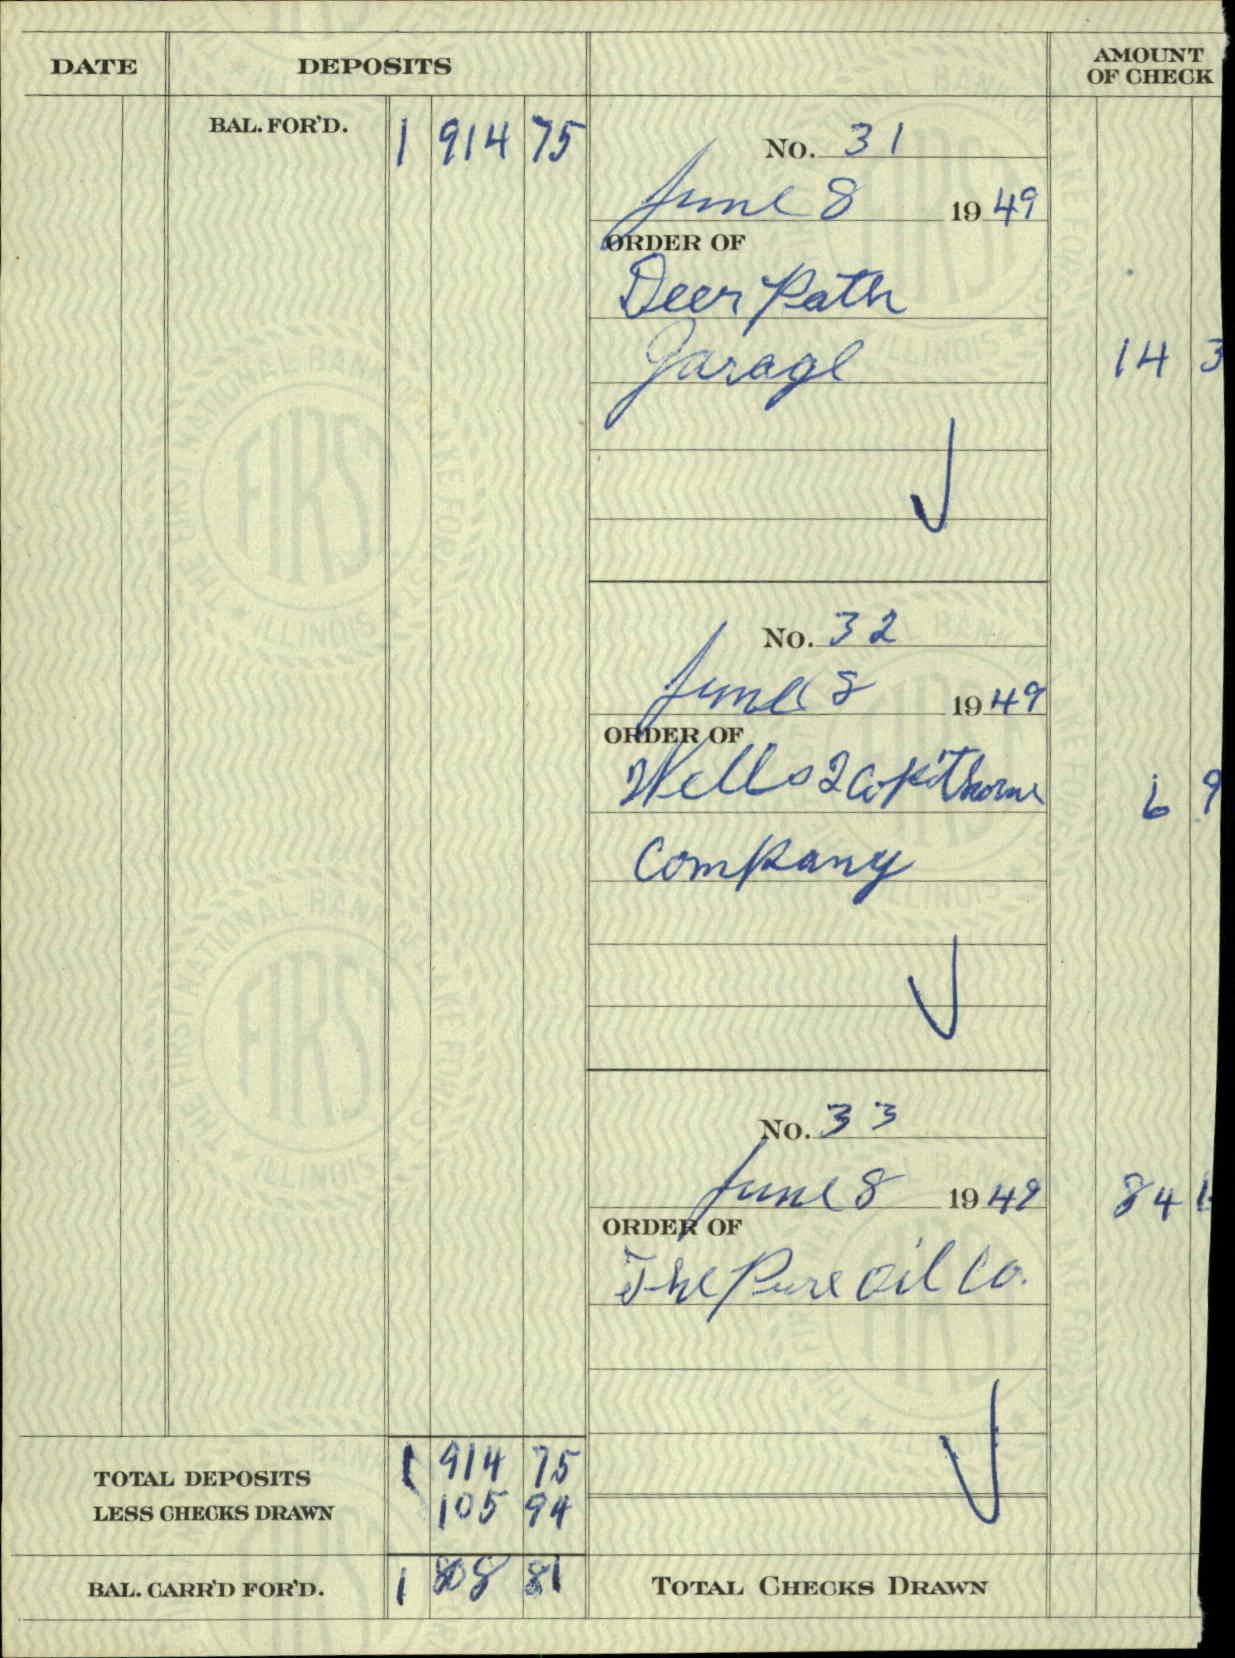 DATE DEPOSITS AMOUNT OF CHECK
BAL. FOR'D. 1 914 75
No. 31
June 8 1949
ORDER OF
Deer Path
Garage 14 3
No. 32
June 8 1949
ORDER OF
Wells & Copithorne 6 9
Company
No. 33
June 8 1949 84
ORDER OF
The Pure Oil Co.
TOTAL DEPOSITS 1 914 75
LESS CHECKS DRAWN 105 94
BAL. CARR'D FOR'D. 1 808 81
TOTAL CHECKS DRAWN